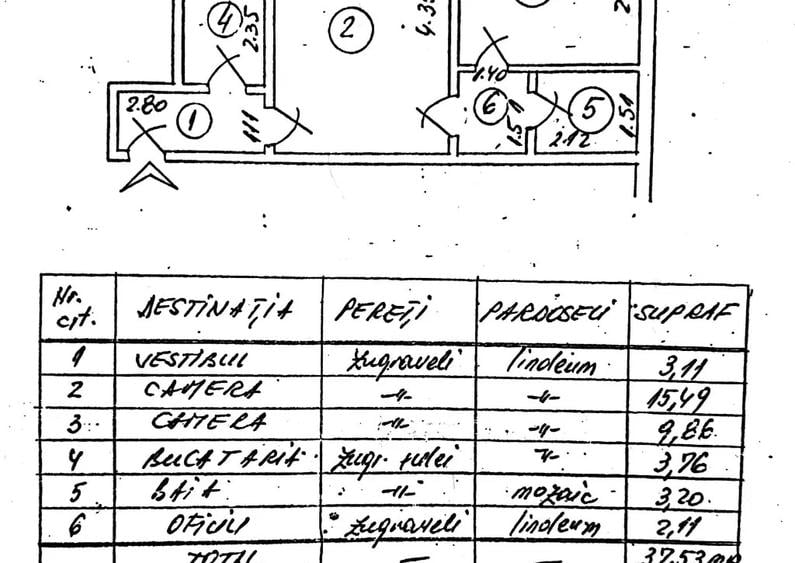 4
2.35
2
4.3
1.40
2.80
1
1.11
6
1.51
5
2.12
1.51
Nr. crt. DESTINAȚIA PEREȚI PARDOSELI SUPRAF
1 VESTIBUL Zugraveli linoleum 3,11
2 CAMERA -"- -"- 15,49
3 CAMERA -"- -"- 9,86
4 BUCATARIA Zugr. ulei -"- 3,76
5 BAIA -"- mozaic 3,20
6 OFICIU Zugraveli linoleum 2,11
TOTAL — — 37,53 mp